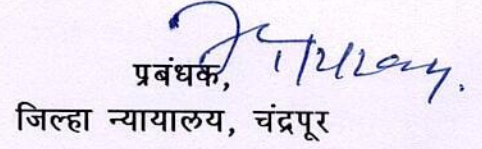 प्रबंधक,
जिल्हा न्यायालय, चंद्रपूर